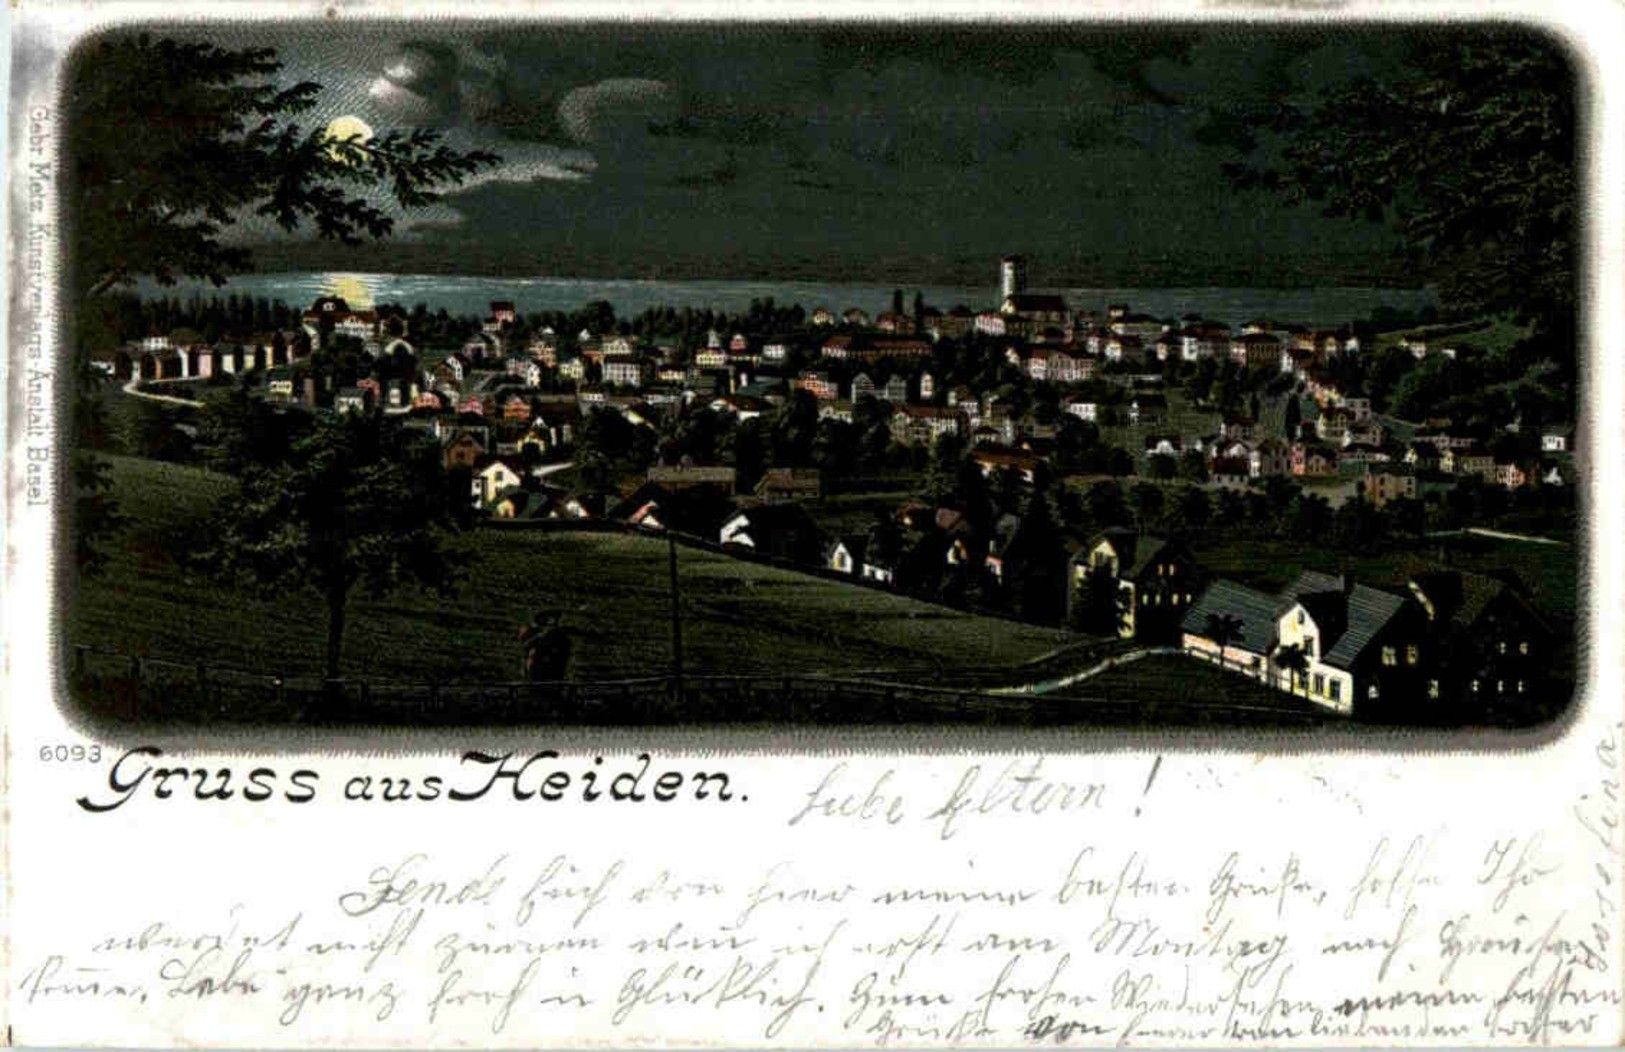 Gebr. Metz, Kunstverlags-Anstalt Basel
6093
Gruss aus Heiden.
Liebe Eltern!
Sende Euch von hier meine besten Grüße, hoffe Ihr
werdet nicht zürnen wen ich erst am Montag nach Hause
komme. Lebe ganz froh u Glücklich. Zum frohen Wiedersehen meine besten
Grüße von Eurer Euch liebenden Tochter